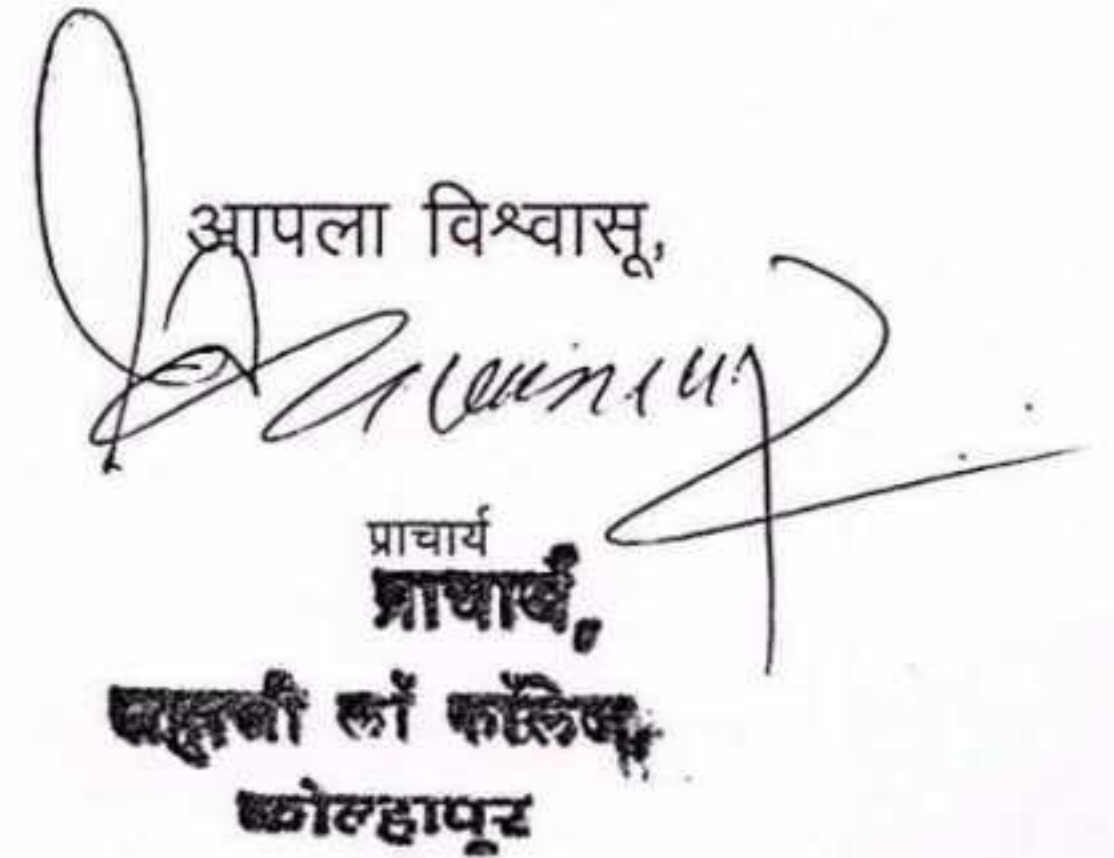 आपला विश्वासू,
प्राचार्य
प्राचार्य,
शहाजी लॉ कॉलेज,
कोल्हापूर